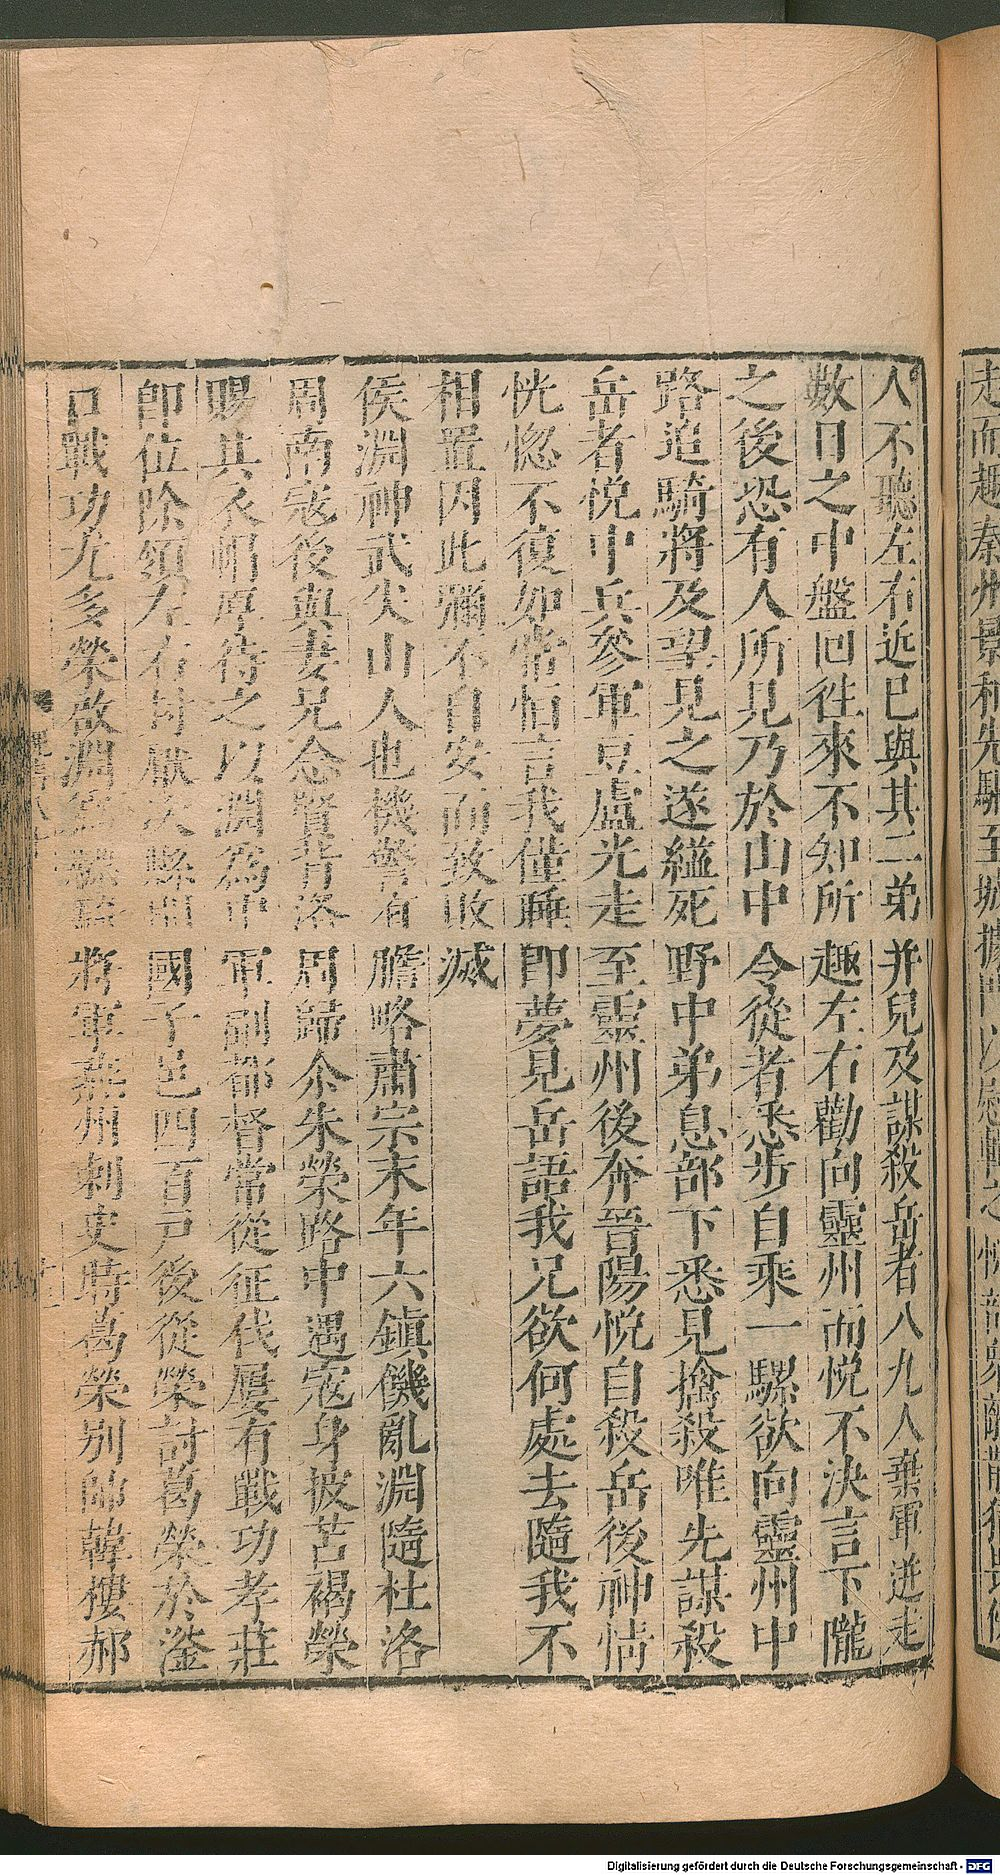 走而趣秦州景和先驅至城據門以慰輯之悅部眾離散猜畏傍
人不聽左右近已與其二弟并兒及謀殺岳者八九人棄軍迸走
數日之中盤回往來不知所趣左右勸向靈州而悅不決言下隴
之後恐有人所見乃於山中令從者悉步自乘一騾欲向靈州中
路追騎將及望見之遂縊死野中弟息部下悉見擒殺唯先謀殺
岳者悅中兵參軍豆盧光走至靈州後奔晉陽悅自殺岳後神情
恍惚不復如常恒言我僅睡即夢見岳語我兄欲何處去隨我不
相置因此彌不自安而致敗滅
侯淵神武尖山人也機警有膽略肅宗末年六鎮饑亂淵隨杜洛
周南寇後與妻兄念賢背洛周歸尒朱榮路中遇寇身披苦褐榮
賜其衣帽厚待之以淵為中軍副都督常從征代屢有戰功孝莊
即位除領左右封厭次縣開國子邑四百戶後從榮討葛榮於滏
口戰功尤多榮啟淵為驃騎將軍燕州刺史時葛榮別帥韓樓郝
Digitalisierung gefördert durch die Deutsche Forschungsgemeinschaft - DFG